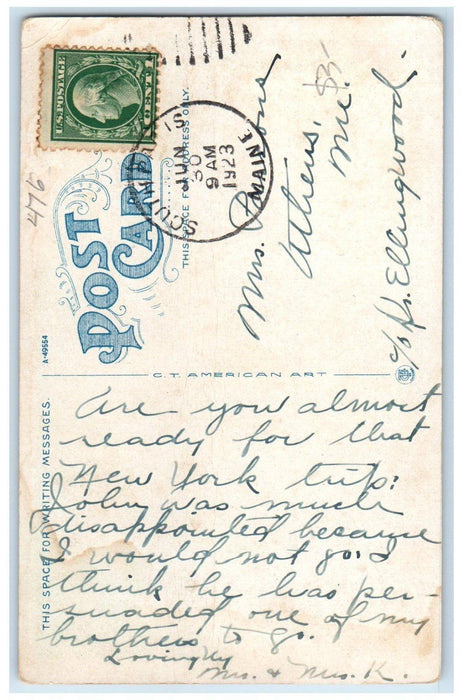 U.S. POSTAGE
1 CENT 1
JUN
30
9 AM
1923
MAINE
POST CARD
THIS SPACE FOR ADDRESS ONLY.
476
$5-
Mrs.
Athens,
Me.
c/o Dr. Ellingwood.
A-49554
C.T. AMERICAN ART
THIS SPACE FOR WRITING MESSAGES.
Are you almost
ready for that
New York trip?
John was much
disappointed because
I would not go. I
think he has per-
suaded one of my
brothers to go.
Lovingly
Mr. & Mrs. K.